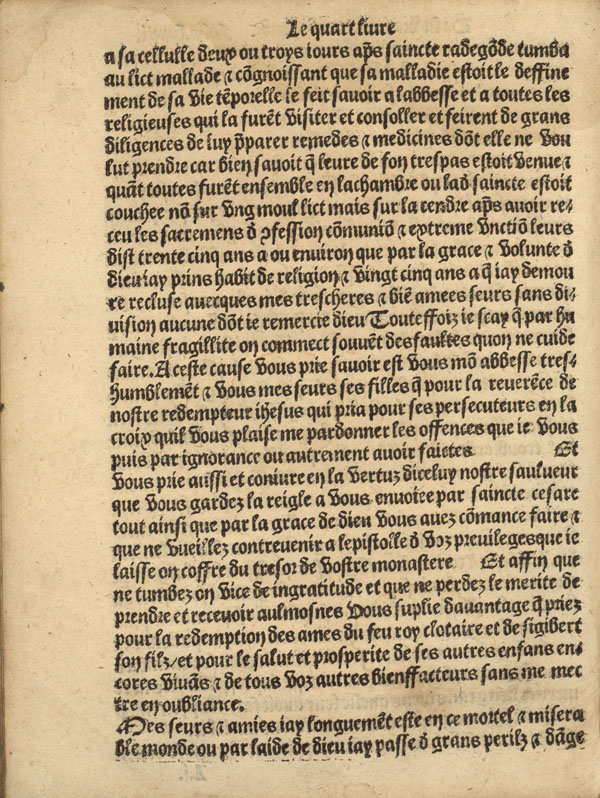 Le quart liure
a sa cellulle deux ou troys iours aṗs saincte radegõde tumba
au lict mallade ⁊ cõgnoissant que sa malladie estoit le deffine
ment de sa vie tẽporelle le feit sauoir a labbesse et a toutes les
religieuses qui la furẽt visiter et consoller et feirent de grans
diligences de luy p̱parer remedes ⁊ medicines dõt elle ne vou
lut prendre car bien sauoit q̃ leure de son trespas estoit venue ⁊
quãt toutes furẽt ensemble en lachambre ou lad̕ saincte estoit
couchee nõ sur vng moul lict mais sur la cendre aṗs auoir re-
ceu les sacremens d̕ ꝯfession cõmuniõ ⁊ extreme vnctiõ leurs
dist trente cinq ans a ou enuiron que par la grace ⁊ volunte d̕
dieu iay prins habit de religion ⁊ vingt cinq ans a q̃ iay demou
re recluse auecques mes trescheres ⁊ biẽ amees seurs sans di-
uision aucune dõt ie remercie dieu Touteffoiz ie scay q̃ par hu
maine fragillite on commect souuẽt des faultes quon ne cuide
faire. A ceste cause vous prie sauoir est vous mõ abbesse tres-
humblemẽt ⁊ vous mes seurs ses filles q̃ pour la reuerẽce de
nostre redempteur ihesus qui pria pour ses persecuteurs en la
croix quil vous plaise me pardonner les offences que ie vous
puis par ignorance ou autrement auoir faictes Et
vous prie aussi et coniure en la vertuz diceluy nostre saulueur
que vous gardez la reigle a vous enuoiee par saincte cesare
tout ainsi que par la grace de dieu vous auez cõmance faire ⁊
que ne vueillez contreuenir a lepistolle d̕ voz preuilegesque ie
laisse on coffre du tresor de vostre monastere Et affin que
ne tumbez on vice de ingratitude et que ne perdez le merite de
prendre et receuoir aulmosnes vous suplie dauantage q̃ priez
pour la redemption des ames du feu roy clotaire et de sigibert
son filz/et pour le salut et prosperite de ses autres enfans en-
cores viuãs ⁊ de tous voz autres bienffacteurs sans me mec
tre en oubliance.
Mes seurs ⁊ amies iay longuemẽt este en ce mortel ⁊ misera
ble monde ou par laide de dieu iay passe d̕ grans perilz ⁊ dãge